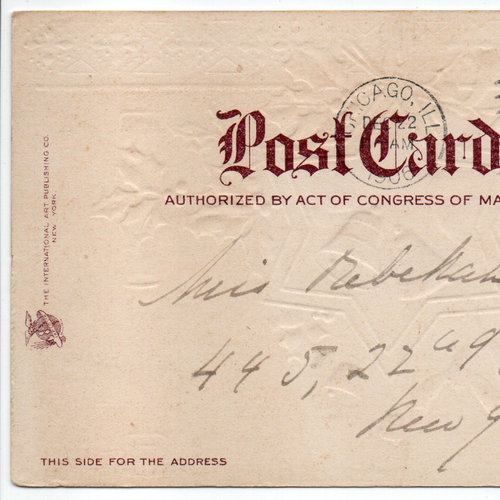 CHICAGO, ILL.
DEC 22
AM
1906
Post Card
AUTHORIZED BY ACT OF CONGRESS OF MA
THE INTERNATIONAL ART PUBLISHING CO.
NEW YORK.
Miss Rebekah
445, 22
New Y
THIS SIDE FOR THE ADDRESS